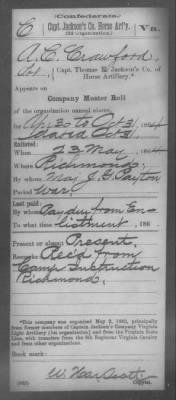 (Confederate.)
C Capt. Jackson's Co. Horse Art'y. Va.
(2d organization.)
A. C. Crawford,
Capt. Thomas E. Jackson's Co. of
Horse Artillery.*
Appears on
Company Muster Roll
of the organization named above,
for Apr 3 to Oct 31, 1864.
dated Oct 31
Enlisted:
When 23 May, 1864
Where Richmond
By whom Maj J. G. Paxton
Period War
Last paid:
By whom Pay due from En-
To what time listment, 186
Present or absent Present
Remarks: Rec'd from
Camp Instruction
Richmond.
*This company was organized May 2, 1863, principally
from former members of Captain Jackson's Company Virginia
Light Artillery (1st organization) and from the Virginia State
Line, with transfers from the 8th Regiment Virginia Cavalry
and from other organizations.
Book mark:
Copyist.